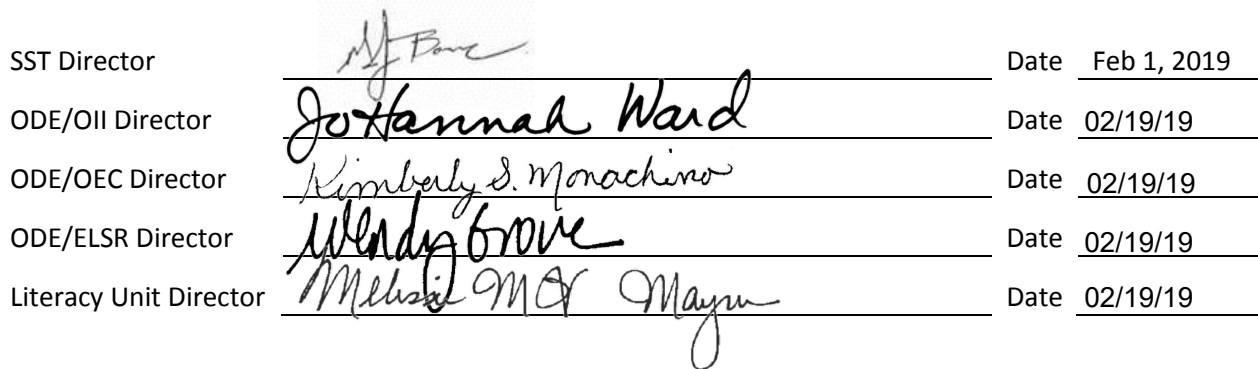 SST Director Date Feb 1, 2019
ODE/OII Director JoHannah Ward Date 02/19/19
ODE/OEC Director Kimberly S. Monachino Date 02/19/19
ODE/ELSR Director Wendy Grove Date 02/19/19
Literacy Unit Director Melissa Date 02/19/19